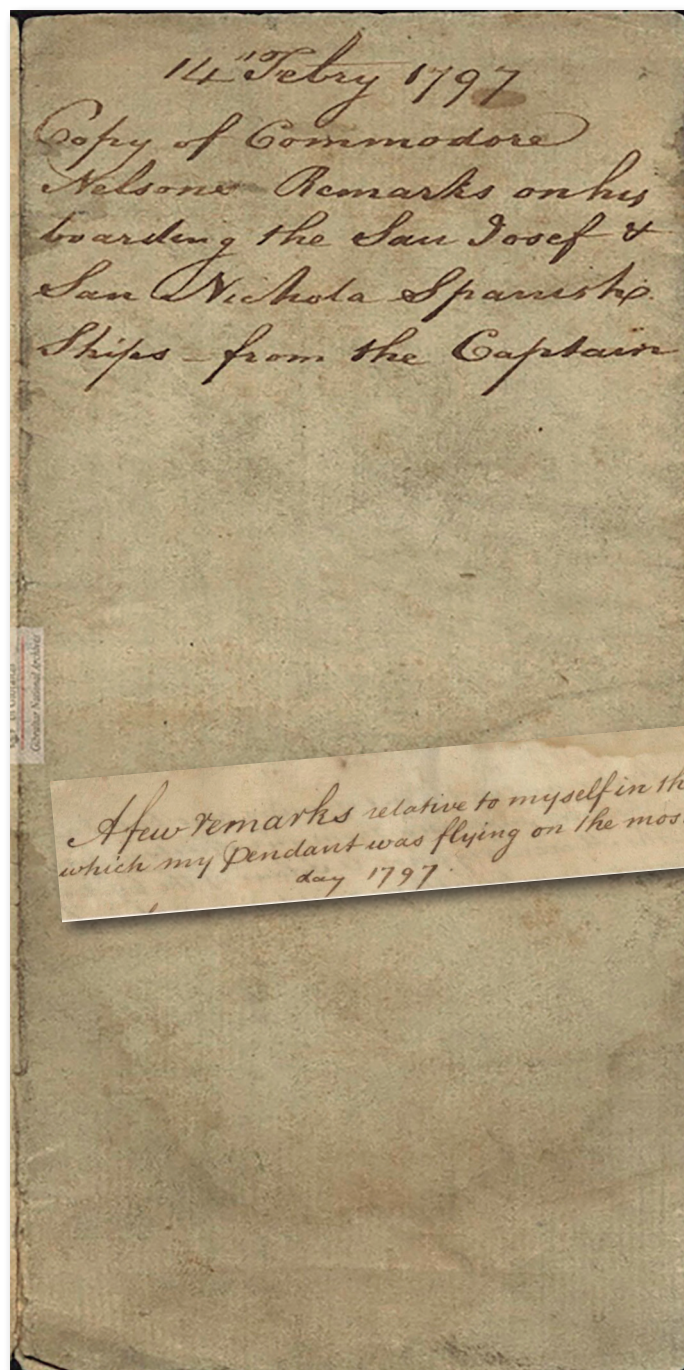 14th Febry 1797
Copy of Commodore
Nelsons Remarks on his
boarding the San Josef &
San Nichola Spanish
Ships - from the Captain
Gibraltar National Archives
A few remarks relative to myself in th
which my Pendant was flying on the mos
day 1797.